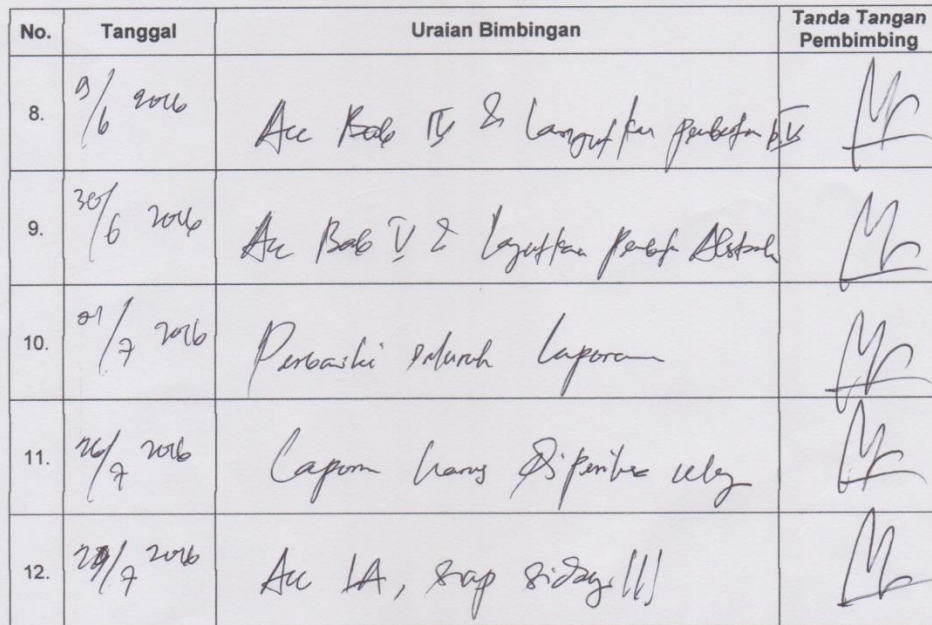 No. Tanggal Uraian Bimbingan Tanda Tangan
Pembimbing
8. 9/6 2016 Acc Bab IV & Lanjutkan
9. 30/6 2016 Acc Bab V & Lanjutkan Abstrak
10. 21/7 2016 Perbaiki seluruh Laporan
11. 26/7 2016 Laporan harus diperiksa
12. /7 2016 Acc LA, siap sidang !!!